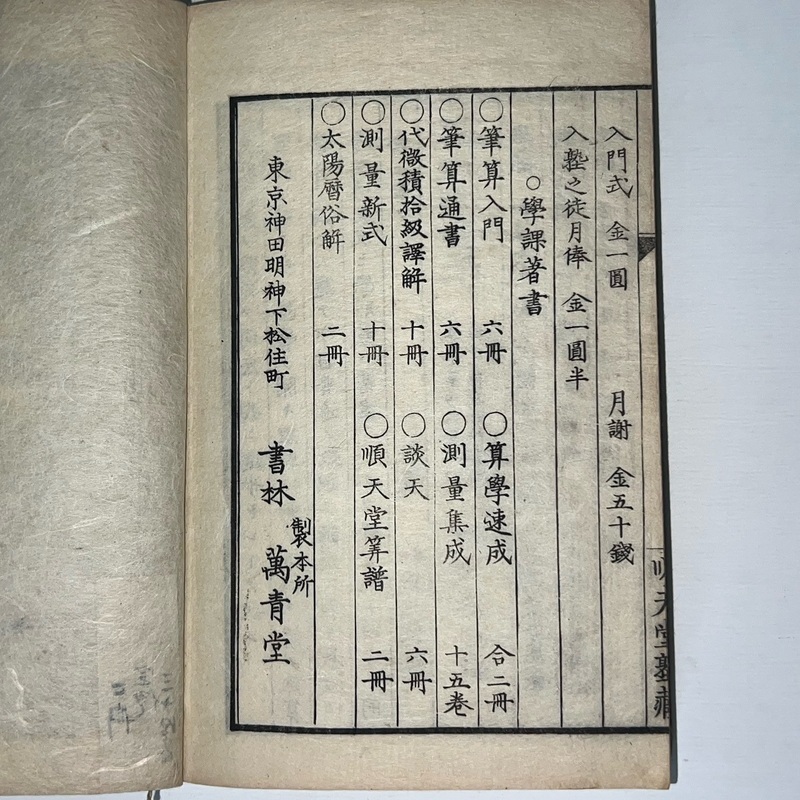 入門式　金一圓　月謝　金五十錢
入塾之徒月俸　金一圓半
○學課著書
○筆算入門　六冊　○算學速成　合二冊
○筆算通書　六冊　○測量集成　十五卷
○代微積拾級譯解　十冊　○談天　六冊
○測量新式　十冊　○順天堂筭譜　二冊
○太陽曆俗解　二冊
東京神田明神下松住町　書林　製本所　萬青堂
順天堂塾藏